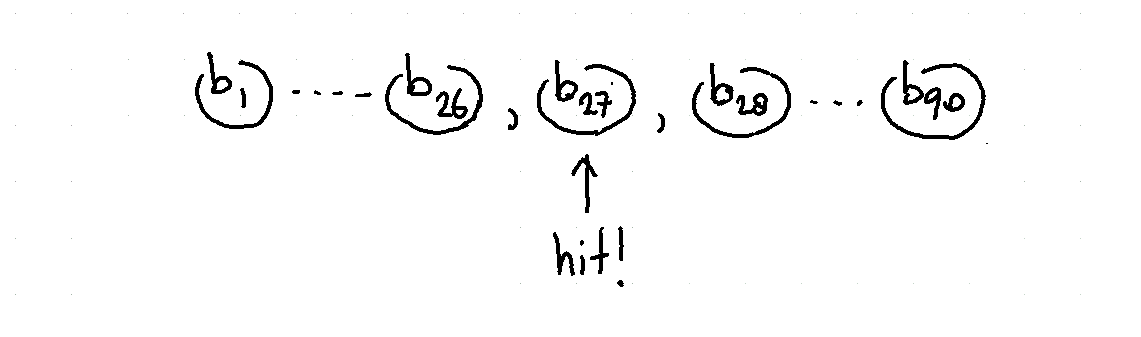 b₁ ----- b₂₆ , b₂₇ , b₂₈ ... b₉₀
hit!